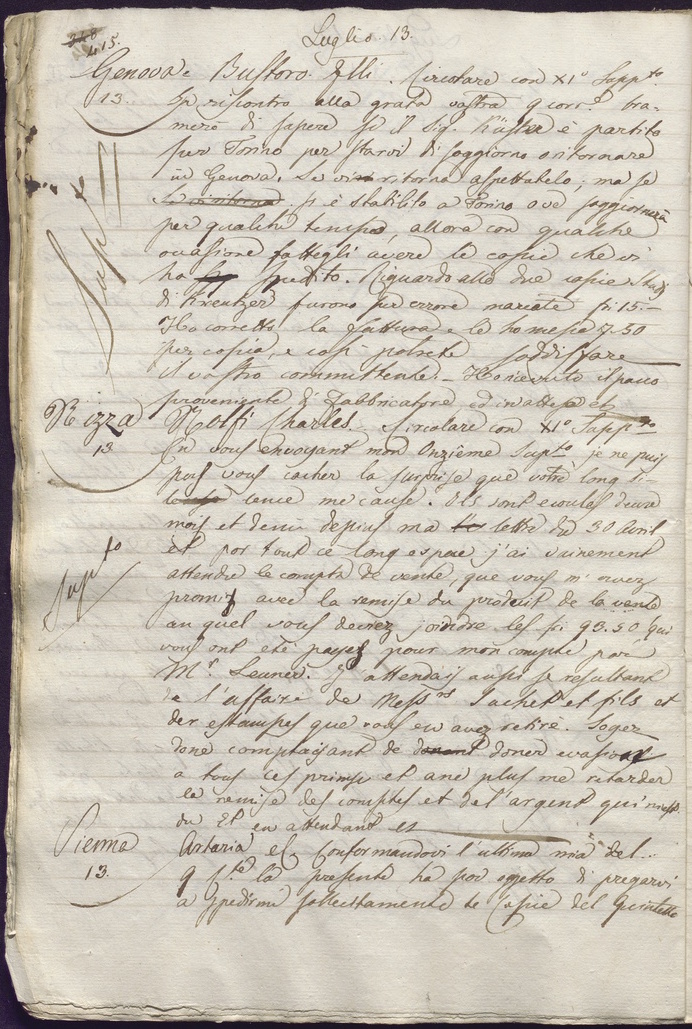 348
415.
Luglio 13.
Genova. Bustoro flli. Circolare con XI° Suppto
13. In riscontro alla grata vostra 9 corre. bra-
merei di sapere se il Sig. Küster è partito
per Torino per starvi di soggiorno o ritornare
in Genova. Se vi ritorna aspettatelo; ma se
si è stabilito a Torino ove soggiornerà
per qualche tempo, allora con qualche
occasione fattegli avere le copie che vi
ho spedito. Riguardo alle due copie Studj
di Kreutzer furono per errore marcate fi 15.-
Ho corretto la fattura e le ho messe 7.50
per copia, e così potrete soddisfare
il vostro committente. - Ho ricevuto il pacco
proveniente di Fabbricatore ed in attesa et
Suppto
Nizza Nolfi Charles. Circolare con XI° Suppto
13. En vous envoyant mon Onzième Supto, je ne puis
pas vous cacher la surprise que votre long si-
lence me cause. Ils sont ecoulés deux
mois et demi depuis ma lettre du 30 Avril
et por tout ce long espace j'ai vainement
attendre le compte de vente, que vous m'avez
promis avec la remise du produit de la vente
au quel vous devrez joindre les fi 93.50 qui
vous ont été payés pour mon compte par
Mr. Leuner. J'attendais aussi le resultant
de l'affaire de Messrs Sachet et fils et
der estampes que vous en avez retiré. Soyez
donc complaisant de doner evasion
a tous ces primse et ane plus me retarder
la remise des comptes et de l'argent qui m'est
du Et en attendant et
Supto
Vienna Artaria e C. Conformandovi l'ultima mia del..
13. q. la presente ha por oggetto di pregarvi
a spedirmi sollecitamente te Copie del Quintetto